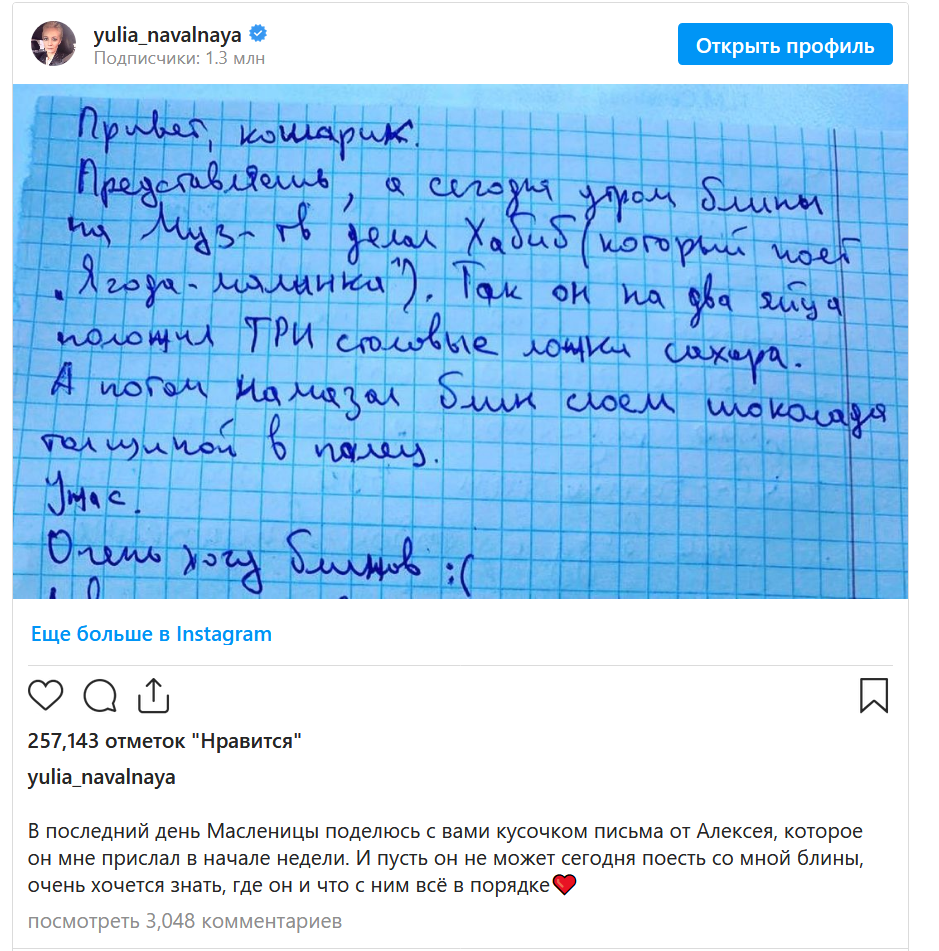 yulia_navalnaya
Подписчики: 1.3 млн
Открыть профиль
Привет, кошарик.
Представляешь, а сегодня утром блины
на Муз-тв делал Хабиб (который поет
„Ягода-малинка"). Так он на два яйца
положил ТРИ столовые ложки сахара.
А потом намазал блин слоем шоколада
толщиной в палец.
Ужас.
Очень хочу блинов :(
Еще больше в Instagram
257,143 отметок "Нравится"
yulia_navalnaya
В последний день Масленицы поделюсь с вами кусочком письма от Алексея, которое
он мне прислал в начале недели. И пусть он не может сегодня поесть со мной блины,
очень хочется знать, где он и что с ним всё в порядке❤️
посмотреть 3,048 комментариев